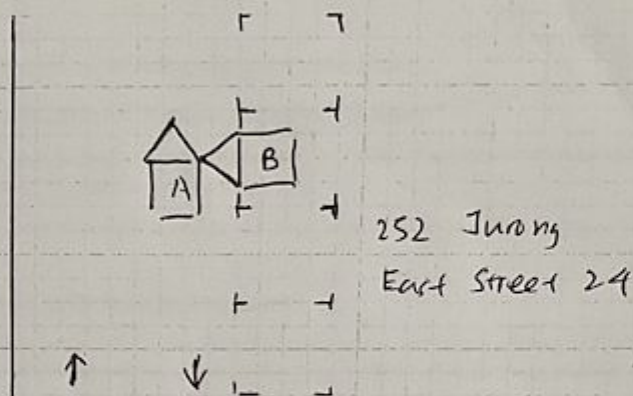 A
B
252 Jurong
East Street 24